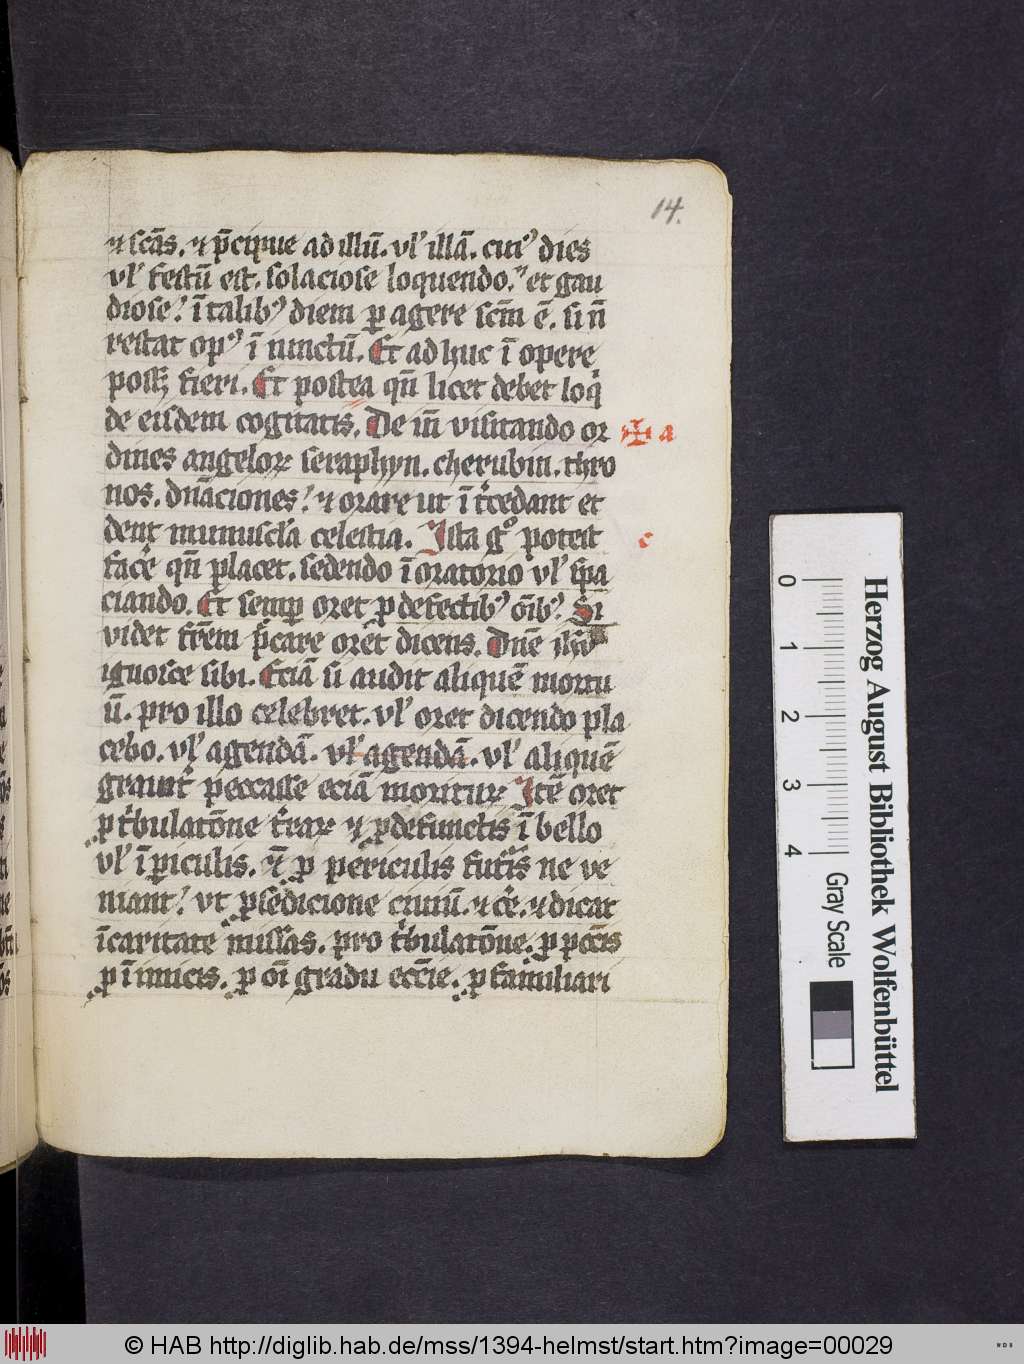 14.
⁊ sc̄as. ⁊ p̄cipue ad illū. vl' illā. cui⁹ dies
vl' festū est. solaciose loquendo. et gau
diose. ī talib⁹ diem ꝑ agere scm̄ ē. si n̄
restat op⁹ ī iunctū. Et ad huc ī opere
postꝫ fieri. Et postea qn̄ licet debet loq̇
de eisdem cogitatis. De in̄ visitando or ✠ a
dines angeloꝝ seraphyn. cherubin. thro
nos. dn̄aciones. ⁊ orare ut ī t'cedant et
dent munuscl'a celestia. Ista gͦ potest c
fac̄e qn̄ placet. sedendo ī oratorio vl' spa
ciando. Et semꝑ oret ꝓ defectib⁹ oīb⁹. Si
videt fr̄em p̄care oret dicens. Dn̄e
ignosce sibi. Eciā si audit aliquē mortu
ū. pro illo celebret. vl' oret dicendo pla
cebo. vl' agendā. vl' agendā. vl' aliquē
grauit' peccasse eciā morituꝝ Itē oret
ꝓ t'bulatōne t'raꝝ ⁊ ꝓ defunctis ī bello
vl' ī ꝑiculis. ⁊ ꝓ periculis fut'is ne ve
niant. vt ꝓ sedicione ciuiū. ⁊ cē. ⁊ dicat
ī caritate missas. pro t'bulatōne. ꝓ pc̄cis
ꝓ ī imicis. ꝓ oī gradu ecc̄ie. ꝓ familiari
Herzog August Bibliothek Wolfenbüttel
0 1 2 3 4 Gray Scale
© HAB http://diglib.hab.de/mss/1394-helmst/start.htm?image=00029